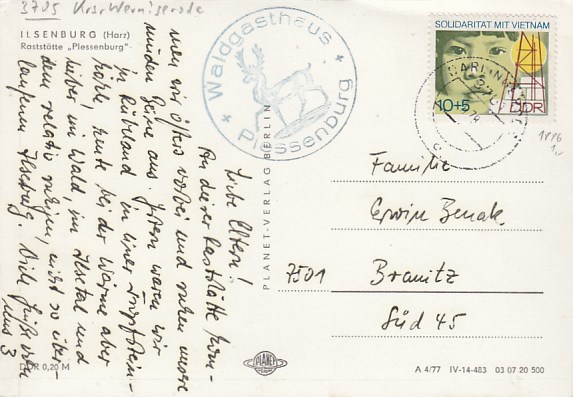 3705 Krs. Wernigerode
ILSENBURG (Harz)
Raststätte „Plessenburg"
Waldgasthaus
Plessenburg
SOLIDARITÄT MIT VIETNAM
10+5
DDR
1886
Liebe Eltern!
An dieser Raststätte kom-
men wir öfters vorbei und ruhen unsere
müden Beine aus. Gestern waren wir
in Rübeland in einer Tropfstein-
höhle, heute bei der Wärme aber
lieber im Wald, im Ilsetal und
dem relativ ruhigen, nicht so über-
laufenen Ilseburg. Viele Grüße von
uns 3
Familie
Erwin Benak
7501 Branitz
Süd 45
PLANET-VERLAG BERLIN
DDR 0,20 M
PLANET
A 4/77 IV-14-483 03 07 20 500